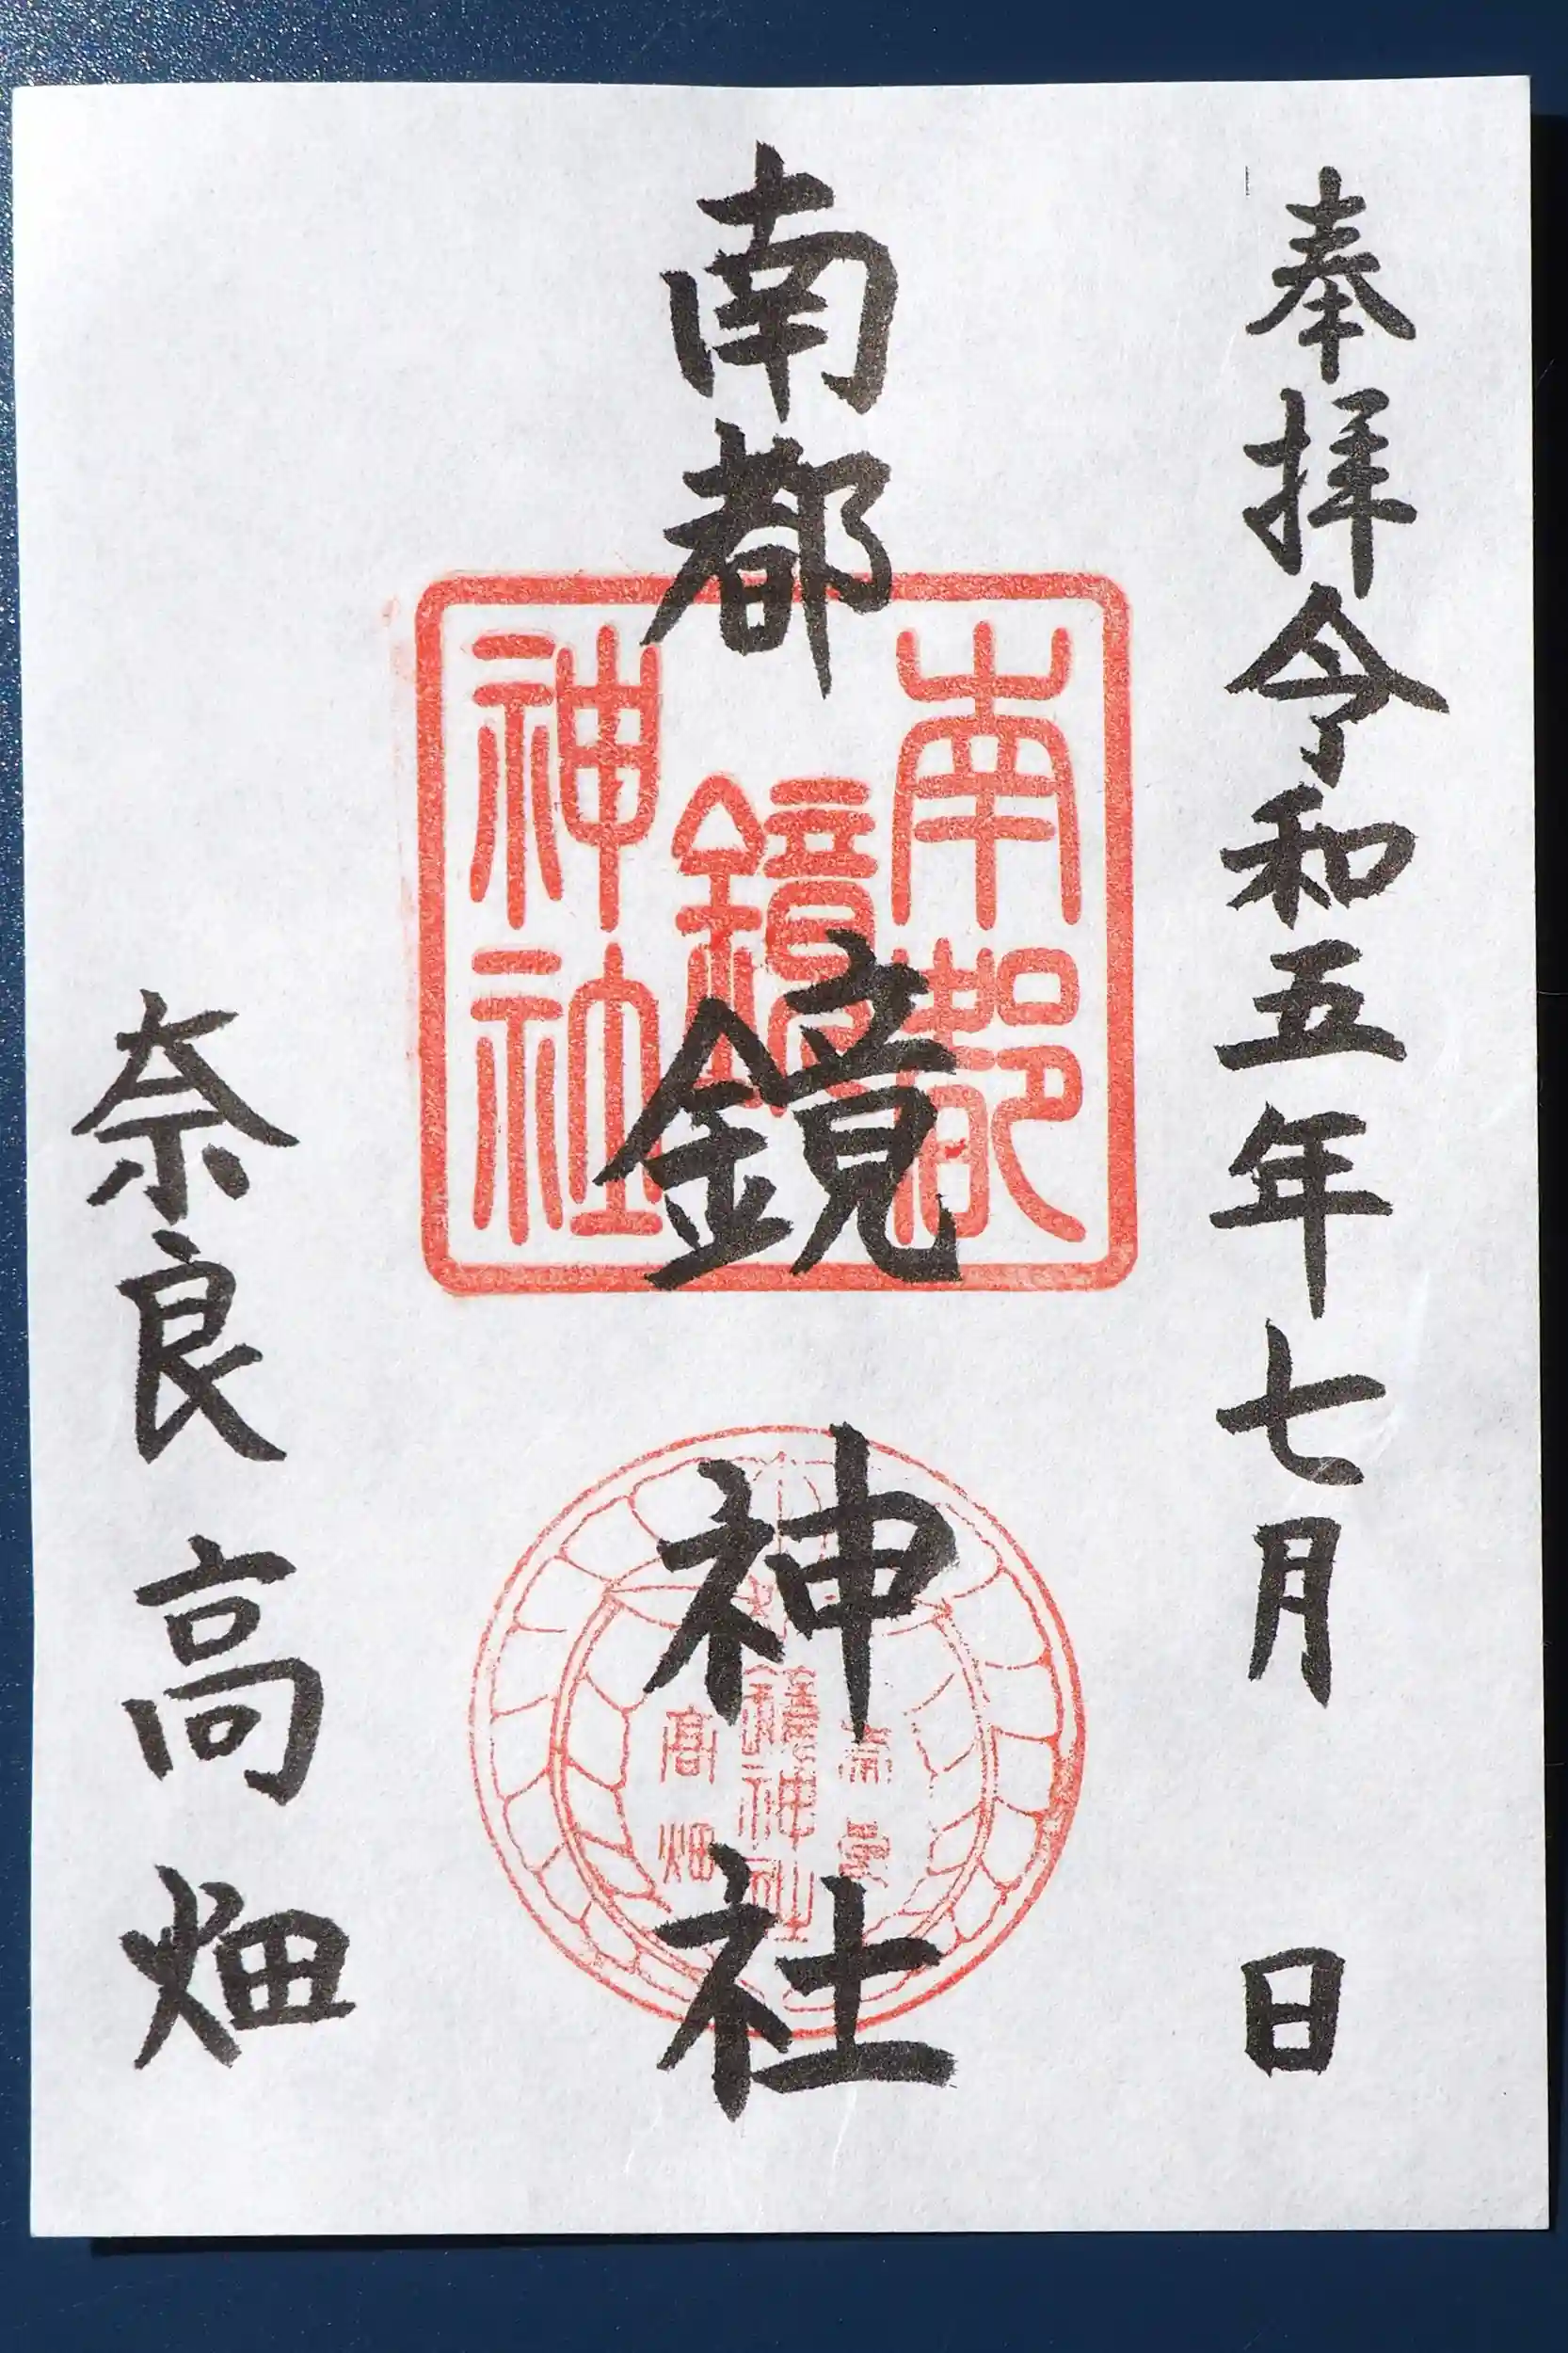 奉拝令和五年七月 日
南都鏡神社
奈良高畑
南都
鏡
神社
奈良
鏡神社
高畑